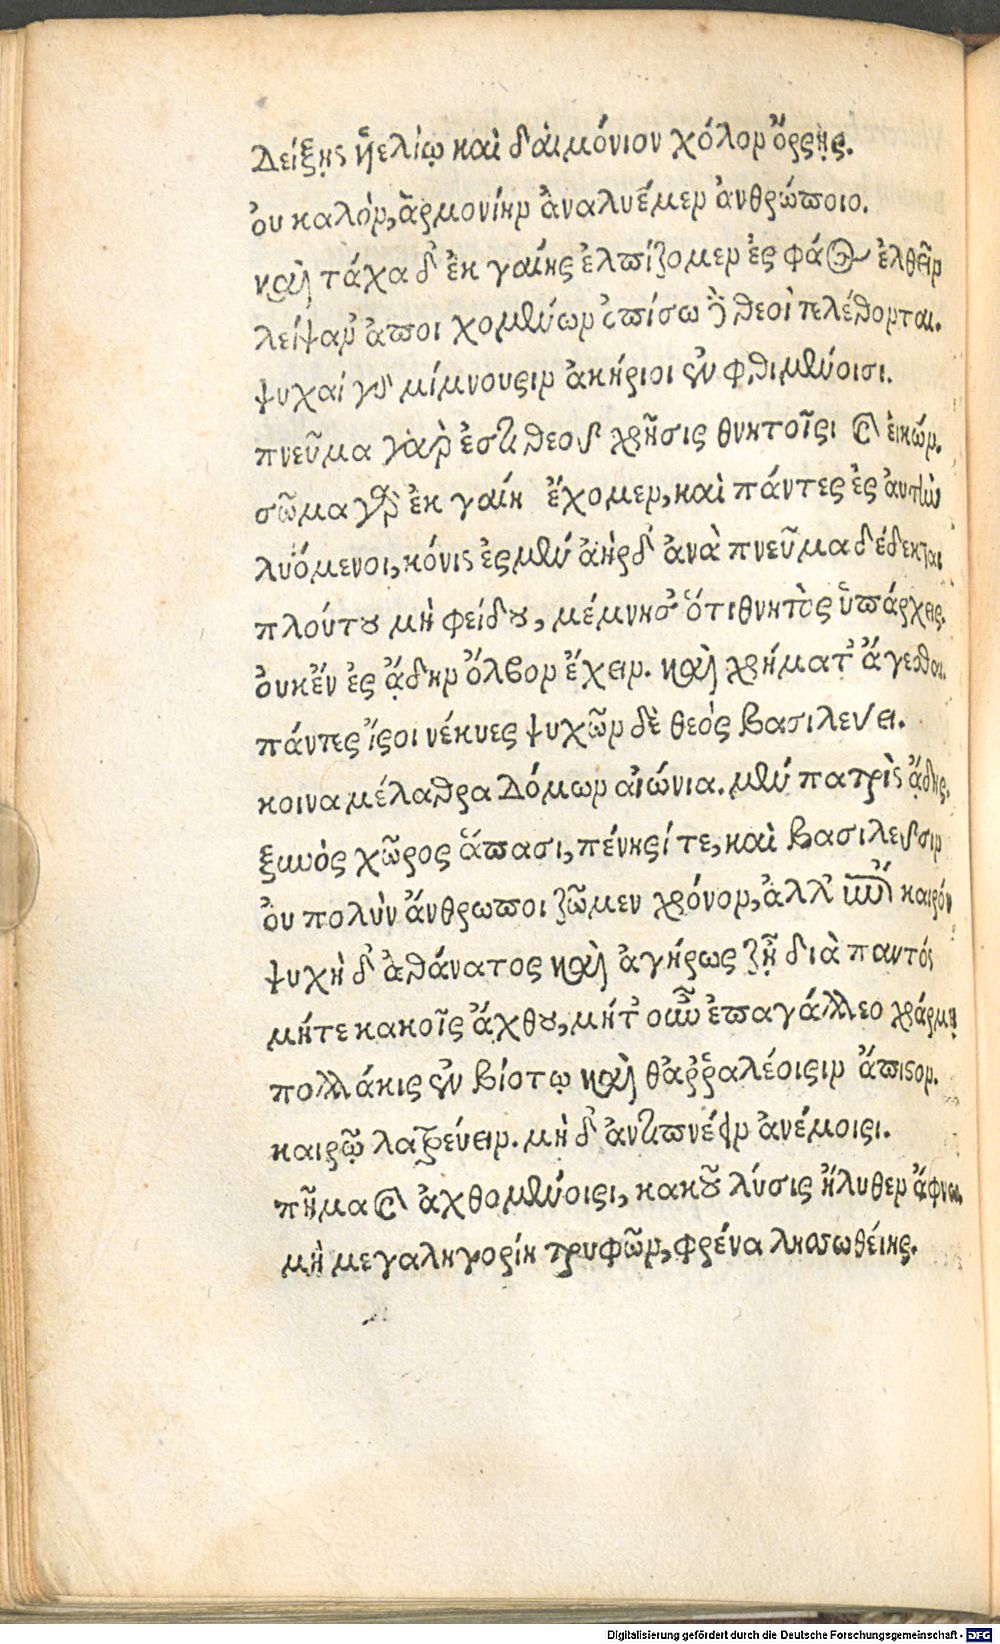 Δείξῃς ἠελίῳ καὶ δαιμόνιον χόλον ὄρσῃς.
ὀυ καλὸν, ἁρμονίην ἀναλυέμεν ἀνθρώποιο.
καὶ τάχα δ' ἐκ γαίης ἐλπίζομεν ἐς φάος ἐλθεῖν
λείψαν' ἀποιχομένων ὀπίσω δὲ θεοὶ τελέθονται.
ψυχαὶ γὰρ μίμνουσιν ἀκήριοι ἐν φθιμένοισι.
πνεῦμα γὰρ ἐστι θεοῦ χρῆσις θνητοῖσι καὶ εἰκών.
σῶμα γὰρ ἐκ γαίη ἔχομεν, καὶ πάντες ἐς ἀυτὴν
λυόμενοι, κόνις ἐσμὲν ἀὴρ δ' ἀνὰ πνεῦμα δέδεκται
πλούτου μὴ φείδου, μέμνησ' ὅτι θνητὸς ὑπάρχεις.
ὀυκ ἔν ἐς ᾅδην ὄλβον ἔχειν. καὶ χρήματ' ἄγεσθαι.
πάντες ἴσοι νέκυες ψυχῶν δὲ θεὸς βασιλεύει.
κοινα μέλαθρα Δόμων αἰώνια. μὲν πατρὶς ᾅδης.
ξυνὸς χῶρος ἅπασι, πένησί τε, καὶ βασιλεῦσιν
ὀυ πολὺν ἄνθρωποι ζῶμεν χρόνον, ἀλλ' ἐπὶ καιρόν
ψυχὴ δ' ἀθάνατος καὶ ἀγήρως ζῇ διὰ παντός
μήτε κακοῖς ἄχθου, μήτ' οὖν ἐπαγάλλεο χάρμῃ
πολλάκις ἐν βίοτῳ καὶ θαῤῥαλέοισιν ἄπιστον.
καιρῷ λατρεύειν. μὴ δ' ἀντιπνέειν ἀνέμοισι.
πῆμα καὶ ἀχθομένοισι, κακοῦ λύσις ἤλυθεν ἄφνω.
μὴ μεγαληγορίη τρυφῶν, φρένα λησσωθείης.
Digitalisierung gefördert durch die Deutsche Forschungsgemeinschaft - DFG